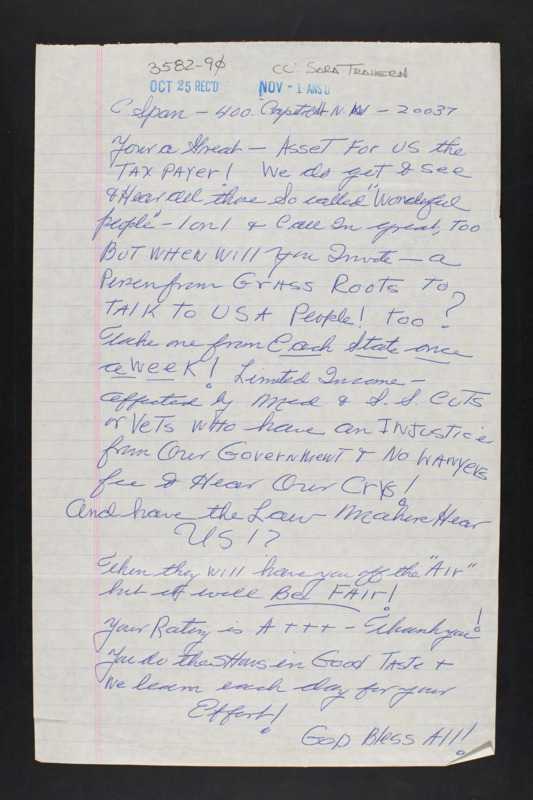 3582-90
CC: SARA TRAHERN
OCT 25 REC'D
NOV - 1 ANS'D
C Span - 400 Capitol N.W - 20037
Your a Great - Asset For US the
TAX PAYer! We do get to See
& Hear all those So called "Wonderful
people" - 1 on 1 & Call In great, Too
BUT WHEN Will you Invite - a
Person from GrAss Roots To
TAlk To USA People! Too?
Take one from Each State once
a WeeK! Limited Income -
affected by Med & S.S. CuTS
or VeTs WHO have an INJusTice
from Our GovernmenT & No LAWyers
fee to Hear Our Crys!
And have the Law Makers Hear
US!?
Then they Will have you off the "Air"
but it will Be FAir!
Your Rating is A+++ - Thank you!
You do the Shows in Good TasTe &
We learn each day for your
Effort!
GoD Bless All!